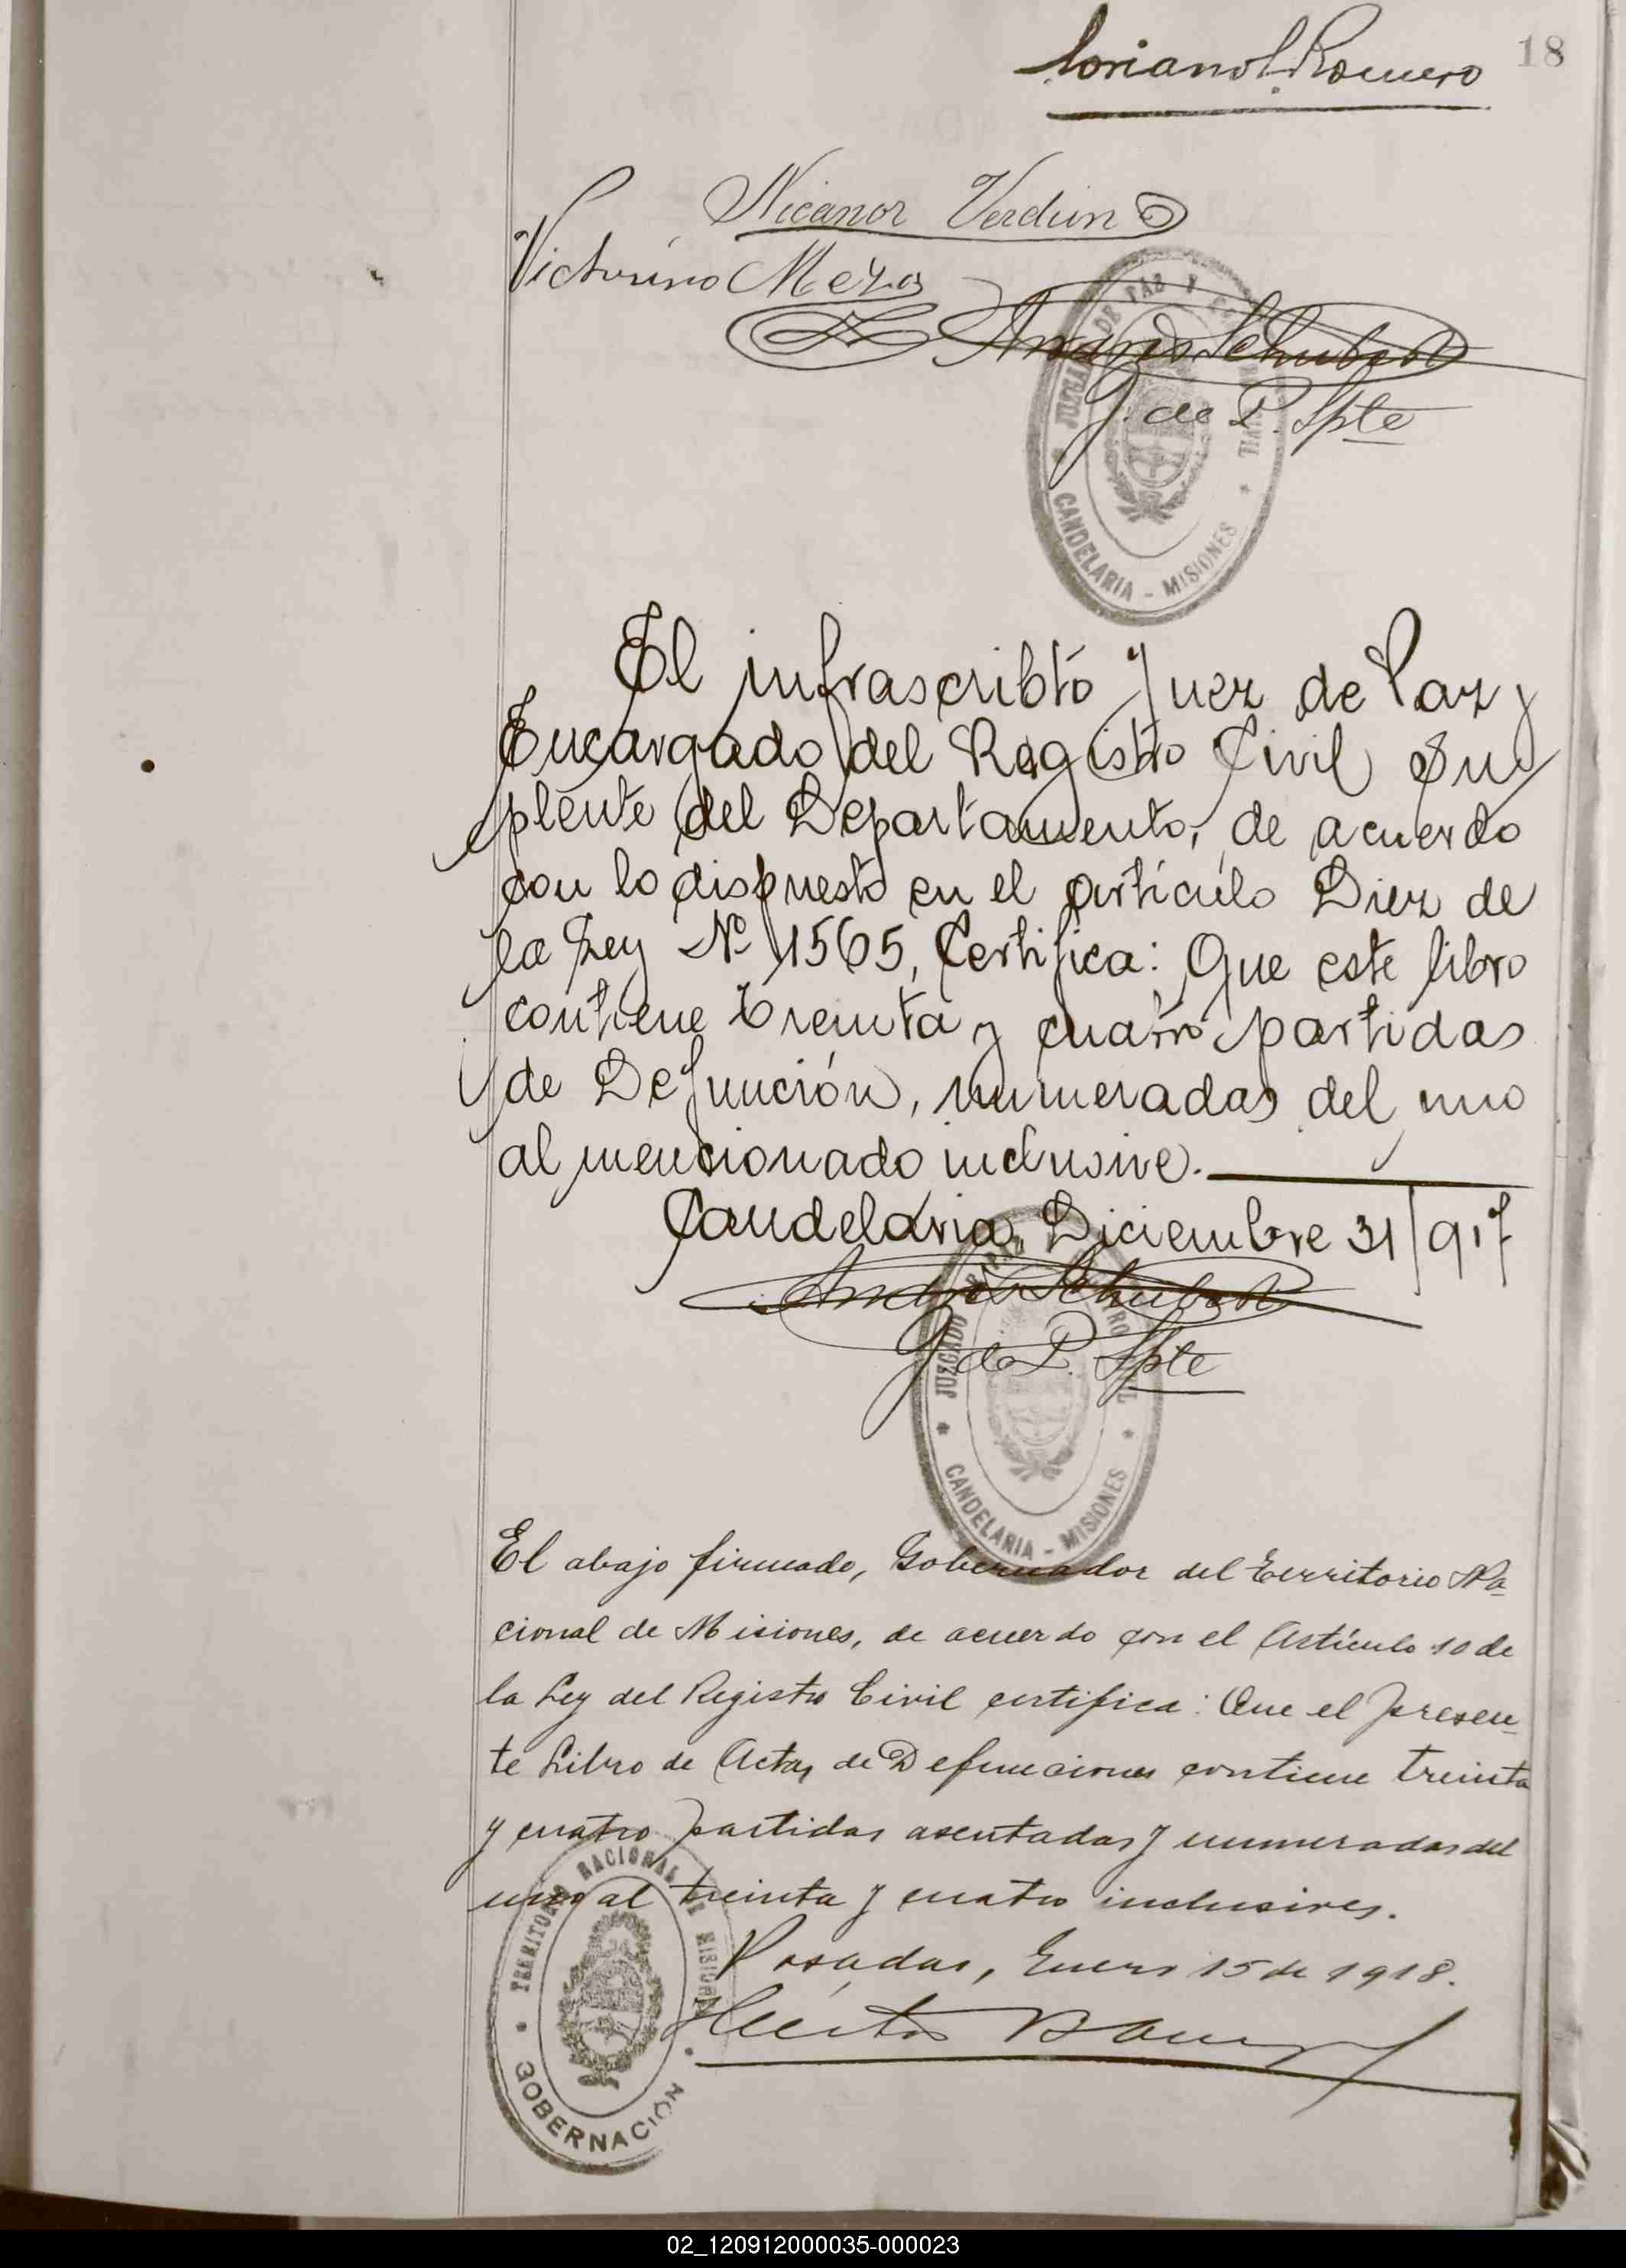 18
Soriano L. Romero
Nicanor Verdun
Victorino Meza
Andrés Schubert
J. de P. Splte
JUZGADO DE PAZ Y REGISTRO CIVIL
CANDELARIA - MISIONES
El infrascribto Juez de Paz y
Encargado del Registro Civil Su
plente del Departamento, de acuerdo
con lo dispuesto en el artículo Diez de
la Ley Nº 1565, Certifica: Que este libro
contiene treinta y cuatro partidas
de Defunción, numeradas del uno
al mencionado inclusive.
Candelaria, Diciembre 31/917
Andrés Schubert
J. de P. Splte
JUZGADO
CANDELARIA - MISIONES
El abajo firmado, Gobernador del Territorio Na-
cional de Misiones, de acuerdo con el Artículo 10 de
la Ley del Registro Civil certifica: Que el presen-
te Libro de Actas de Defunciones contiene treinta
y cuatro partidas asentadas y numeradas del
uno al treinta y cuatro inclusives.
Posadas, Enero 15 de 1918.
TERRITORIO NACIONAL DE MISIONES
GOBERNACIÓN
02_120912000035-000023